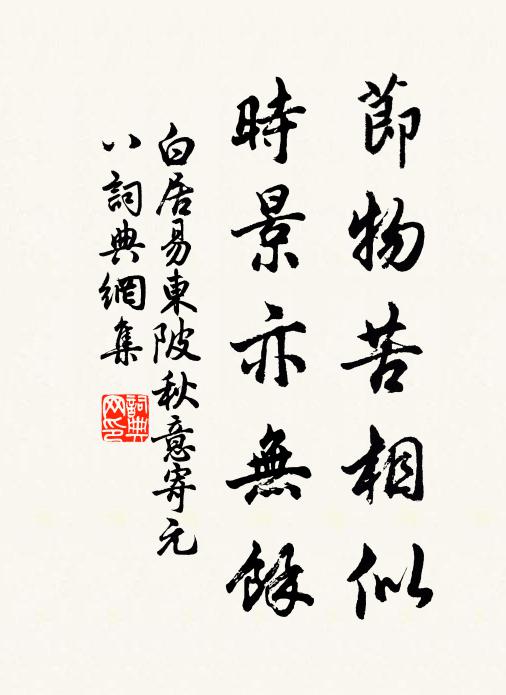 節物苦相似
時景亦無餘
白居易東陂秋意寄元
八詞典網集
詞典網印